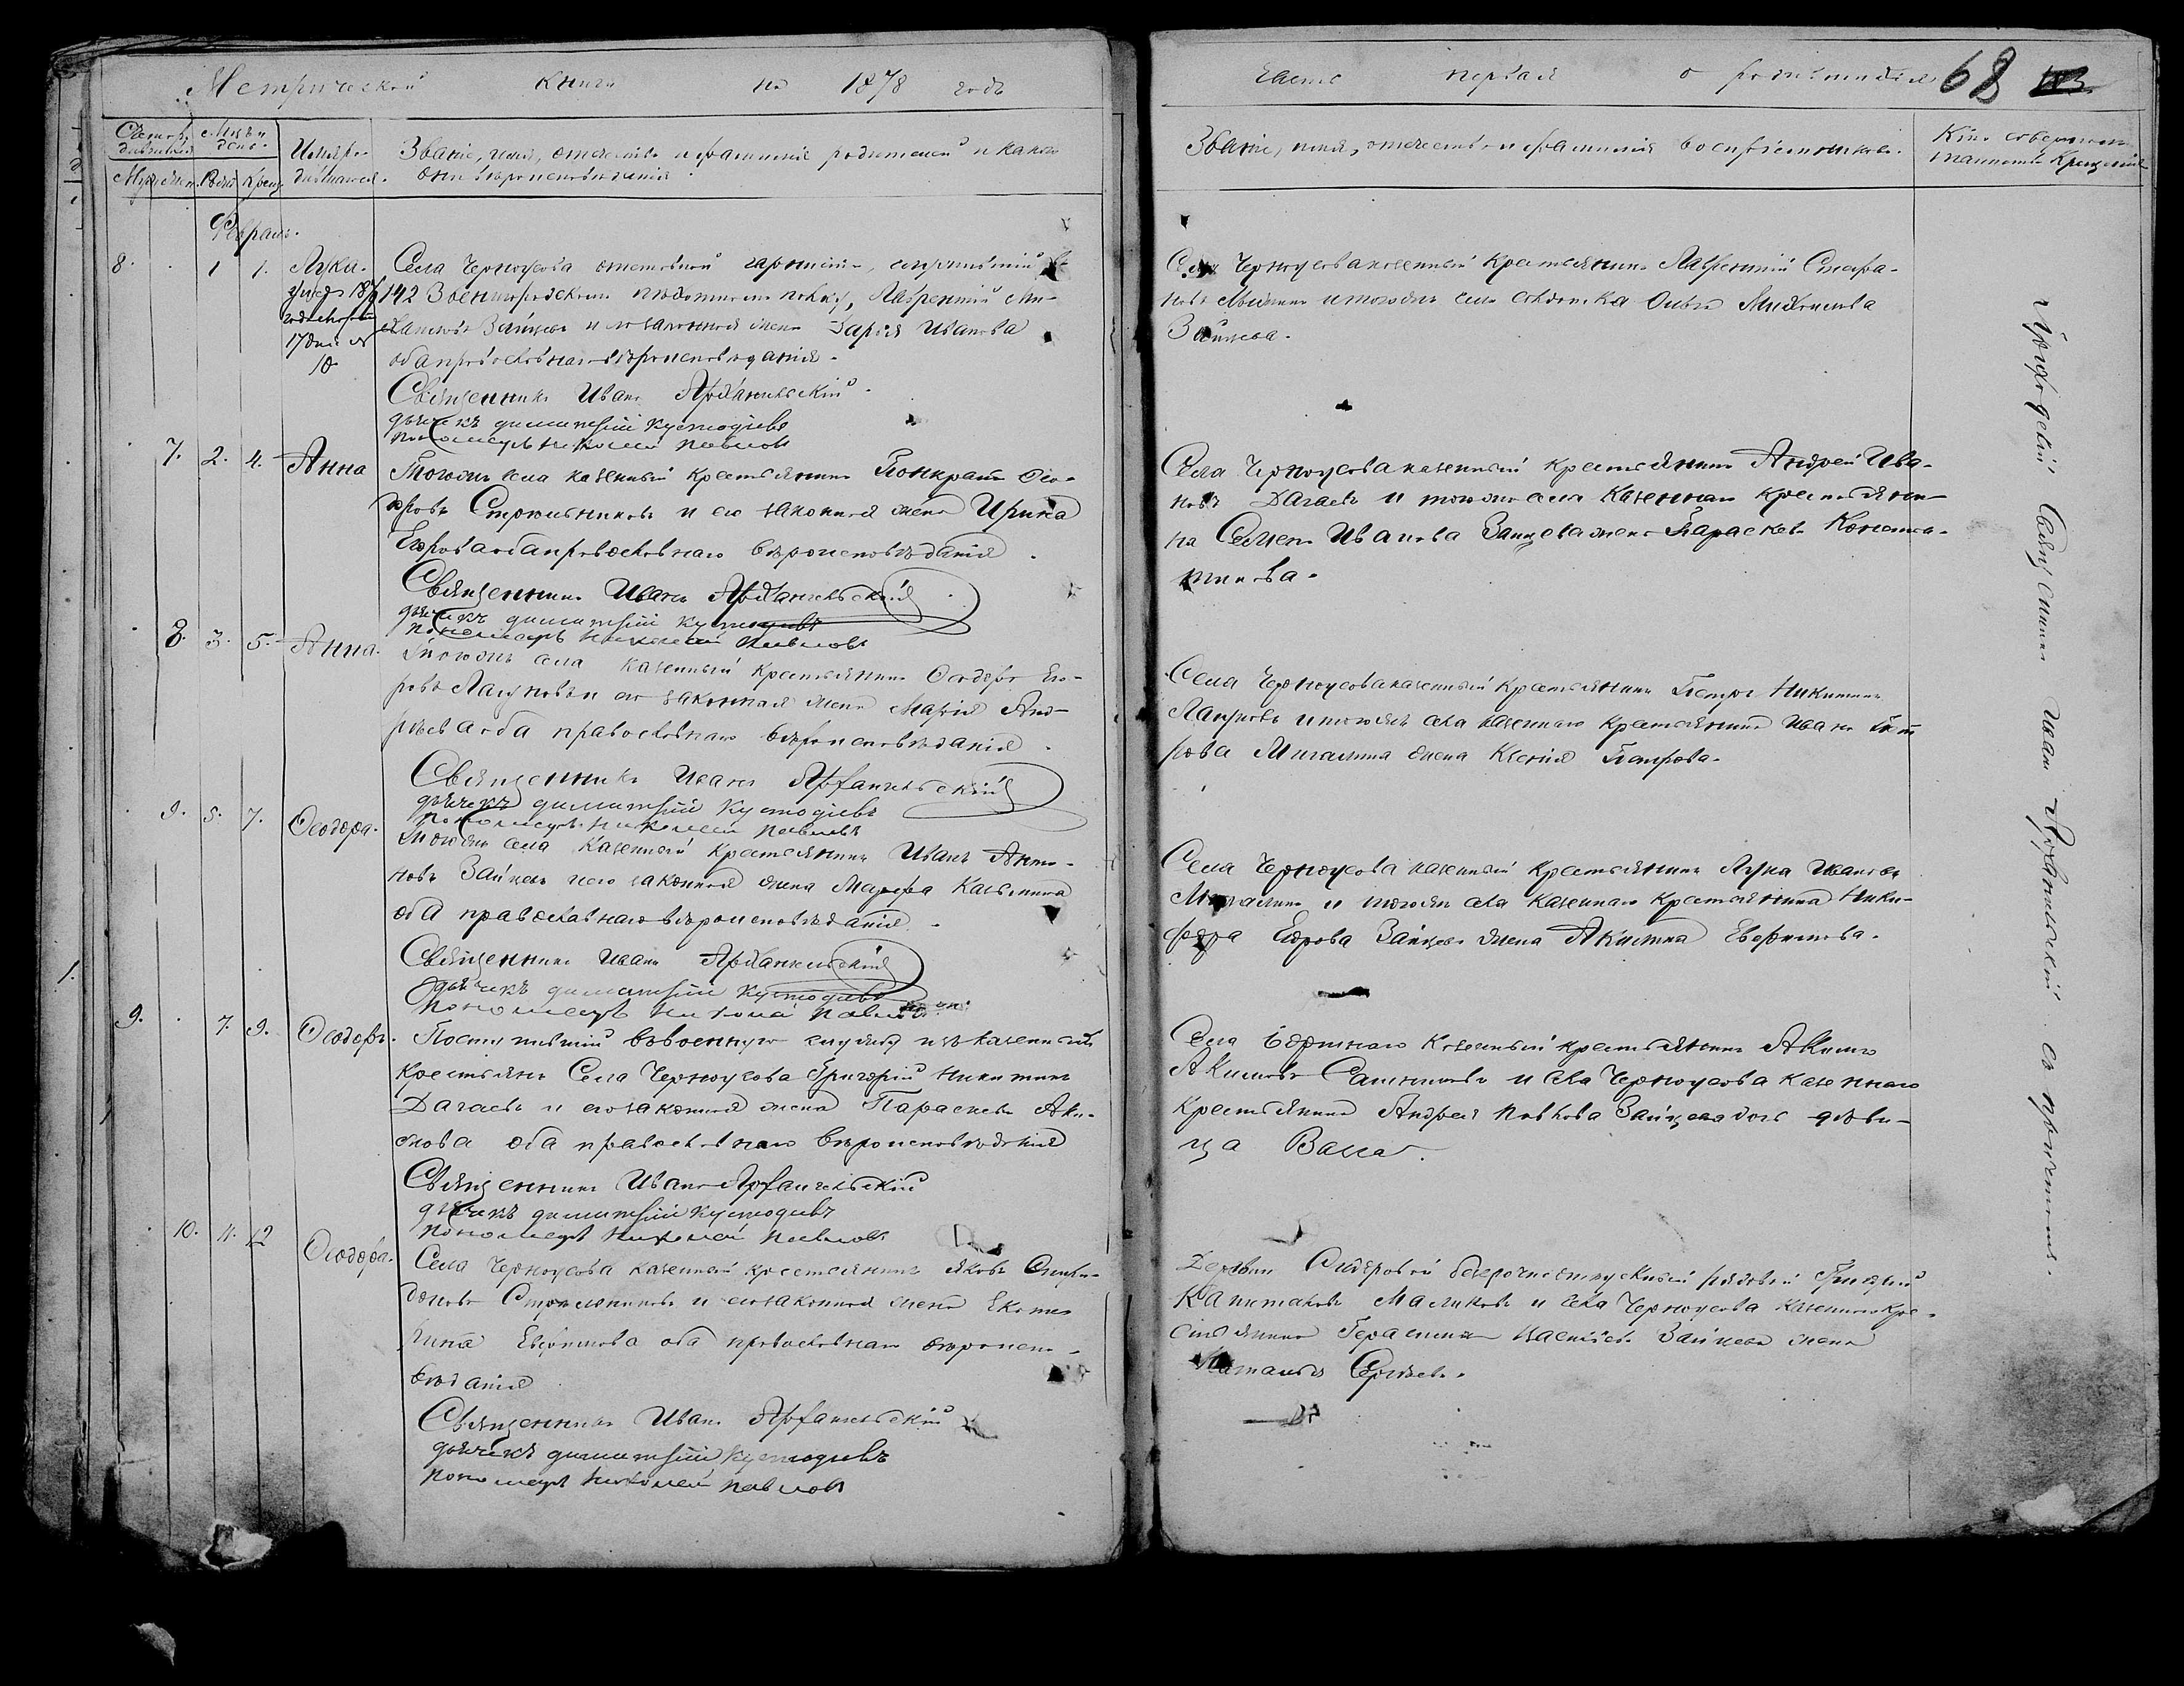 Метрической книги на 1878 годъ
Счетъ родившихся
Мѣсяцъ и день
Имена родившихся.
Званіе, имя, отчество и фамилія родителей и какого
они вѣроисповѣданія.
Муж. Жен. Рожд. Крещ.
Февраль.
8. 1 1. Лука.
17 дня
Села Черноусова отставной служившій въ
142 Звенигородскомъ пѣхотномъ полку, Лаврентій Ми-
хаиловъ Зайцевъ и его законная жена Дарья Иванова
оба православнаго вѣроисповѣданія.
Священникъ Иванъ Архангельскій.
дьячекъ димитрій кустодіевъ
пономарь николай павловъ
7. 2. 4. Анна
Тогожъ села казенный крестьянинъ Понкратъ Ѳео-
доровъ Стрельниковъ и его законная жена Ирина
Егорова оба православнаго вѣроисповѣданія.
Священникъ Иванъ Архангельскій
дьячекъ димитрій кустодіевъ
пономарь николай павловъ
8. 3. 5. Анна.
Тогожъ села казенный крестьянинъ Ѳеодоръ Его-
ровъ и его законная жена Марія Анд-
рѣева оба православнаго вѣроисповѣданія.
Священникъ Иванъ Архангельскій
дьячекъ димитрій кустодіевъ
пономарь николай павловъ
9. 5. 7. Ѳеодора.
Тогожъ села казенный крестьянинъ Иванъ Анто-
новъ Зайцевъ и его законная жена Марфа Касьянова
оба православнаго вѣроисповѣданія.
Священникъ Иванъ Архангельскій
дьячекъ димитрій кустодіевъ
пономарь николай павловъ
9. 7. 9. Ѳеодоръ.
Поступившій въ военную службу изъ казенныхъ
крестьянъ Села Черноусова Григорій Никитинъ
Дагаевъ и его законная жена Параскева Аки-
мова оба православнаго вѣроисповѣданія
Священникъ Иванъ Архангельскій
дьячекъ димитрій кустодіевъ
пономарь николай павловъ
10. 11. 12 Ѳеодора.
Села Черноусова казенный крестьянинъ Яковъ Спири-
доновъ Стрельниковъ и его законная жена Екате-
рина Евфимова оба православнаго вѣроиспо-
вѣданія
Священникъ Иванъ Архангельскій
дьячекъ димитрій кустодіевъ
пономарь николай павловъ
Часть первая о родившихся 68
Званіе, имя, отчество и фамилія воспріемниковъ.
Кто совершалъ
таинство Крещенія
Села Черноусова казенный крестьянинъ Лаврентій Стефа-
новъ и тогожъ села солдатка Ольга Михаилова
Зайцева.
Села Черноусова казенный крестьянинъ Андрей Ива-
новъ Дагаевъ и тогожъ села казеннаго крестьяни-
на Семена Иванова Зайцева жена Параскева Конста-
нтинова.
Села Черноусова казенный крестьянинъ Петръ Никитинъ
Лапуновъ и тогожъ села казеннаго крестьянина Ивана Пет
рова Мигалина жена Ксенія Петрова.
Села Черноусова казенный крестьянинъ Лука Ивановъ
Мигалинъ и тогожъ села казеннаго крестьянина Ники-
фора Егорова Зайцева жена Акилина Евфимова.
Села казенный крестьянинъ Акимъ
Акимовъ и села Черноусова казеннаго
крестьянина Андрея Зайцева дочь дѣви-
ца Васса.
Деревни Сидоровой безсрочноотпускный рядовой Григорій
Капитановъ Маликовъ и села Черноусова казеннаго кре-
стьянина Герасима Зайцева жена
Наталья Сергѣева.
Приходскій Священникъ Иванъ Архангельскій съ причтомъ.